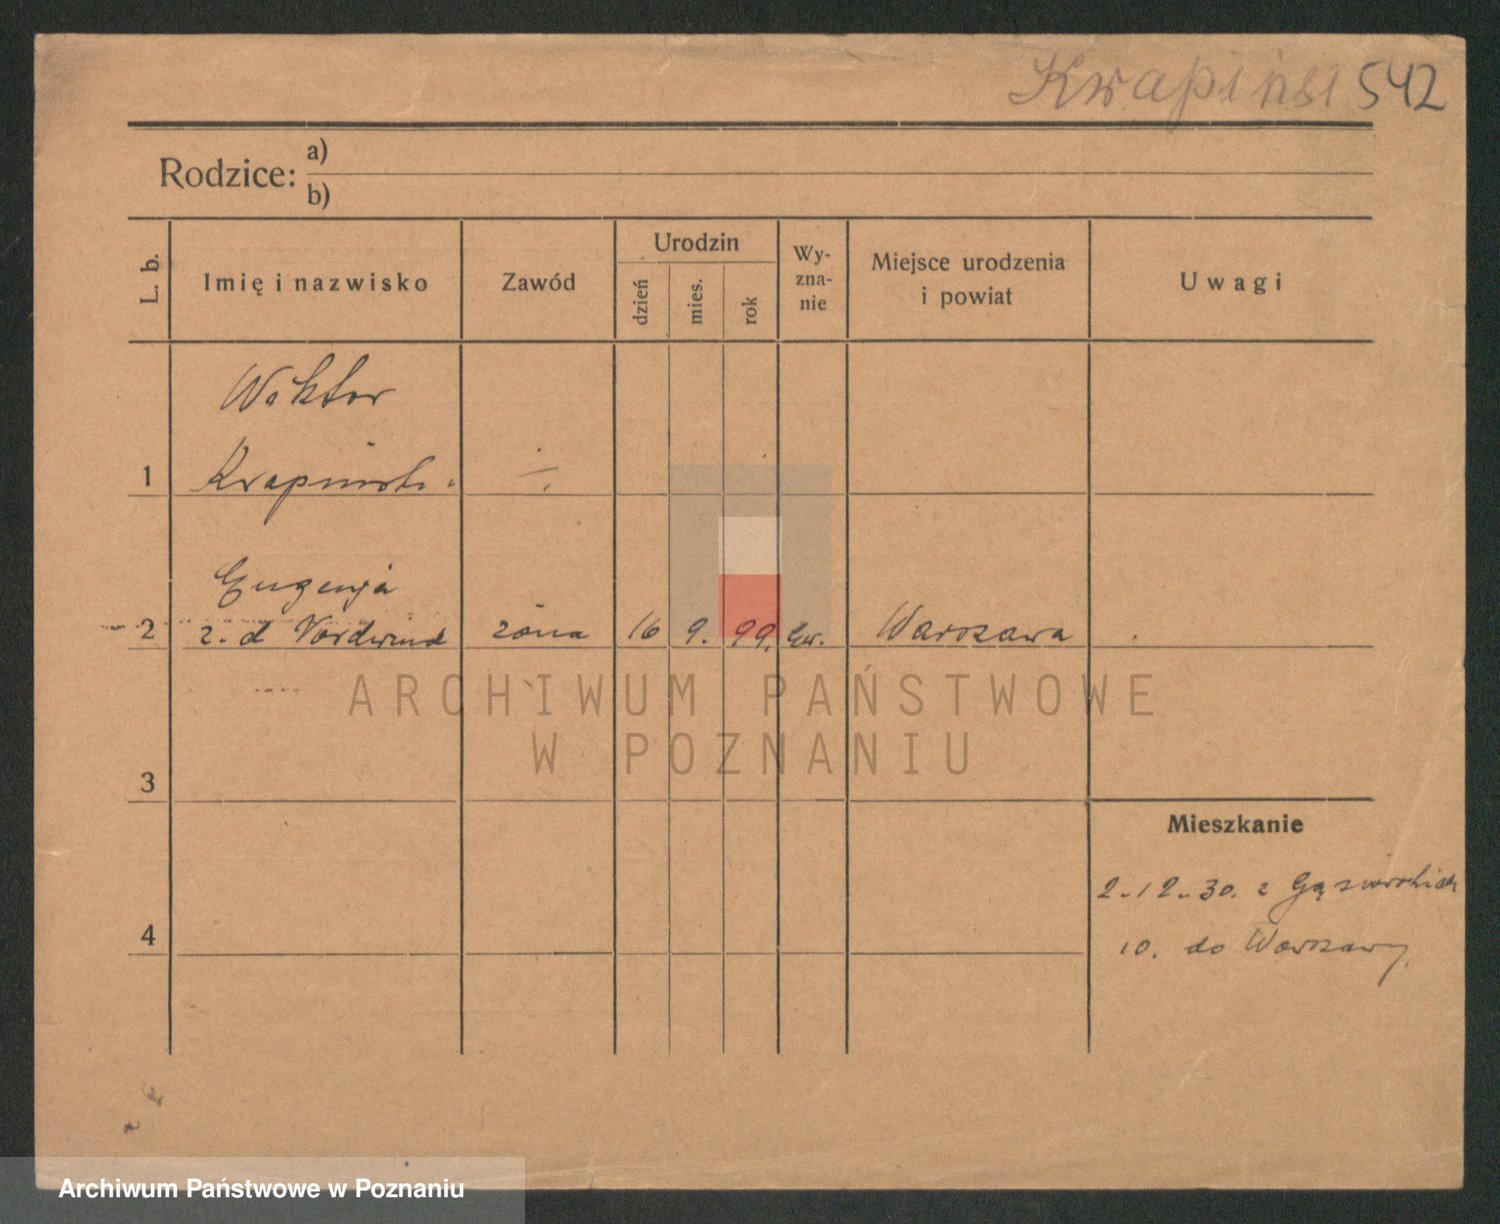 Krapiński 542
Rodzice: a)
b)
L. b.
Imię i nazwisko
Zawód
Urodzin
dzień
mies.
rok
Wy-
zna-
nie
Miejsce urodzenia
i powiat
Uwagi
Wiktor
1 Krapiński
Eugenja
2 z. d. żona 16 9. 99. Ew. Warszawa
3
Mieszkanie
2-12-30. z
4
10. do Warszawy.
ARCHIWUM PAŃSTWOWE
W POZNANIU
Archiwum Państwowe w Poznaniu